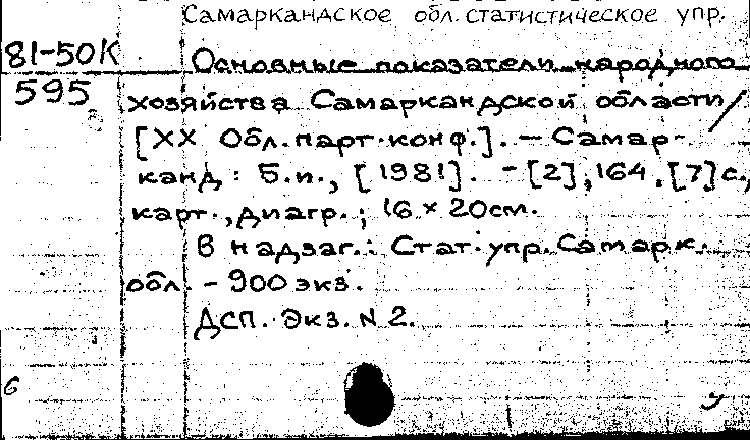 Самаркандское обл. статистическое упр.
81-50К
Основные показатели народного
595
хозяйства Самаркандской области /
[XX Обл. парт. конф.]. - Самар-
канд: Б.и., [1981]. - [2], 164, [7] с.,
карт., диагр.; 16 × 20см.
В надзаг.: Стат. упр. Самарк.
обл. - 900 экз.
ДСП. Экз. N 2.
6